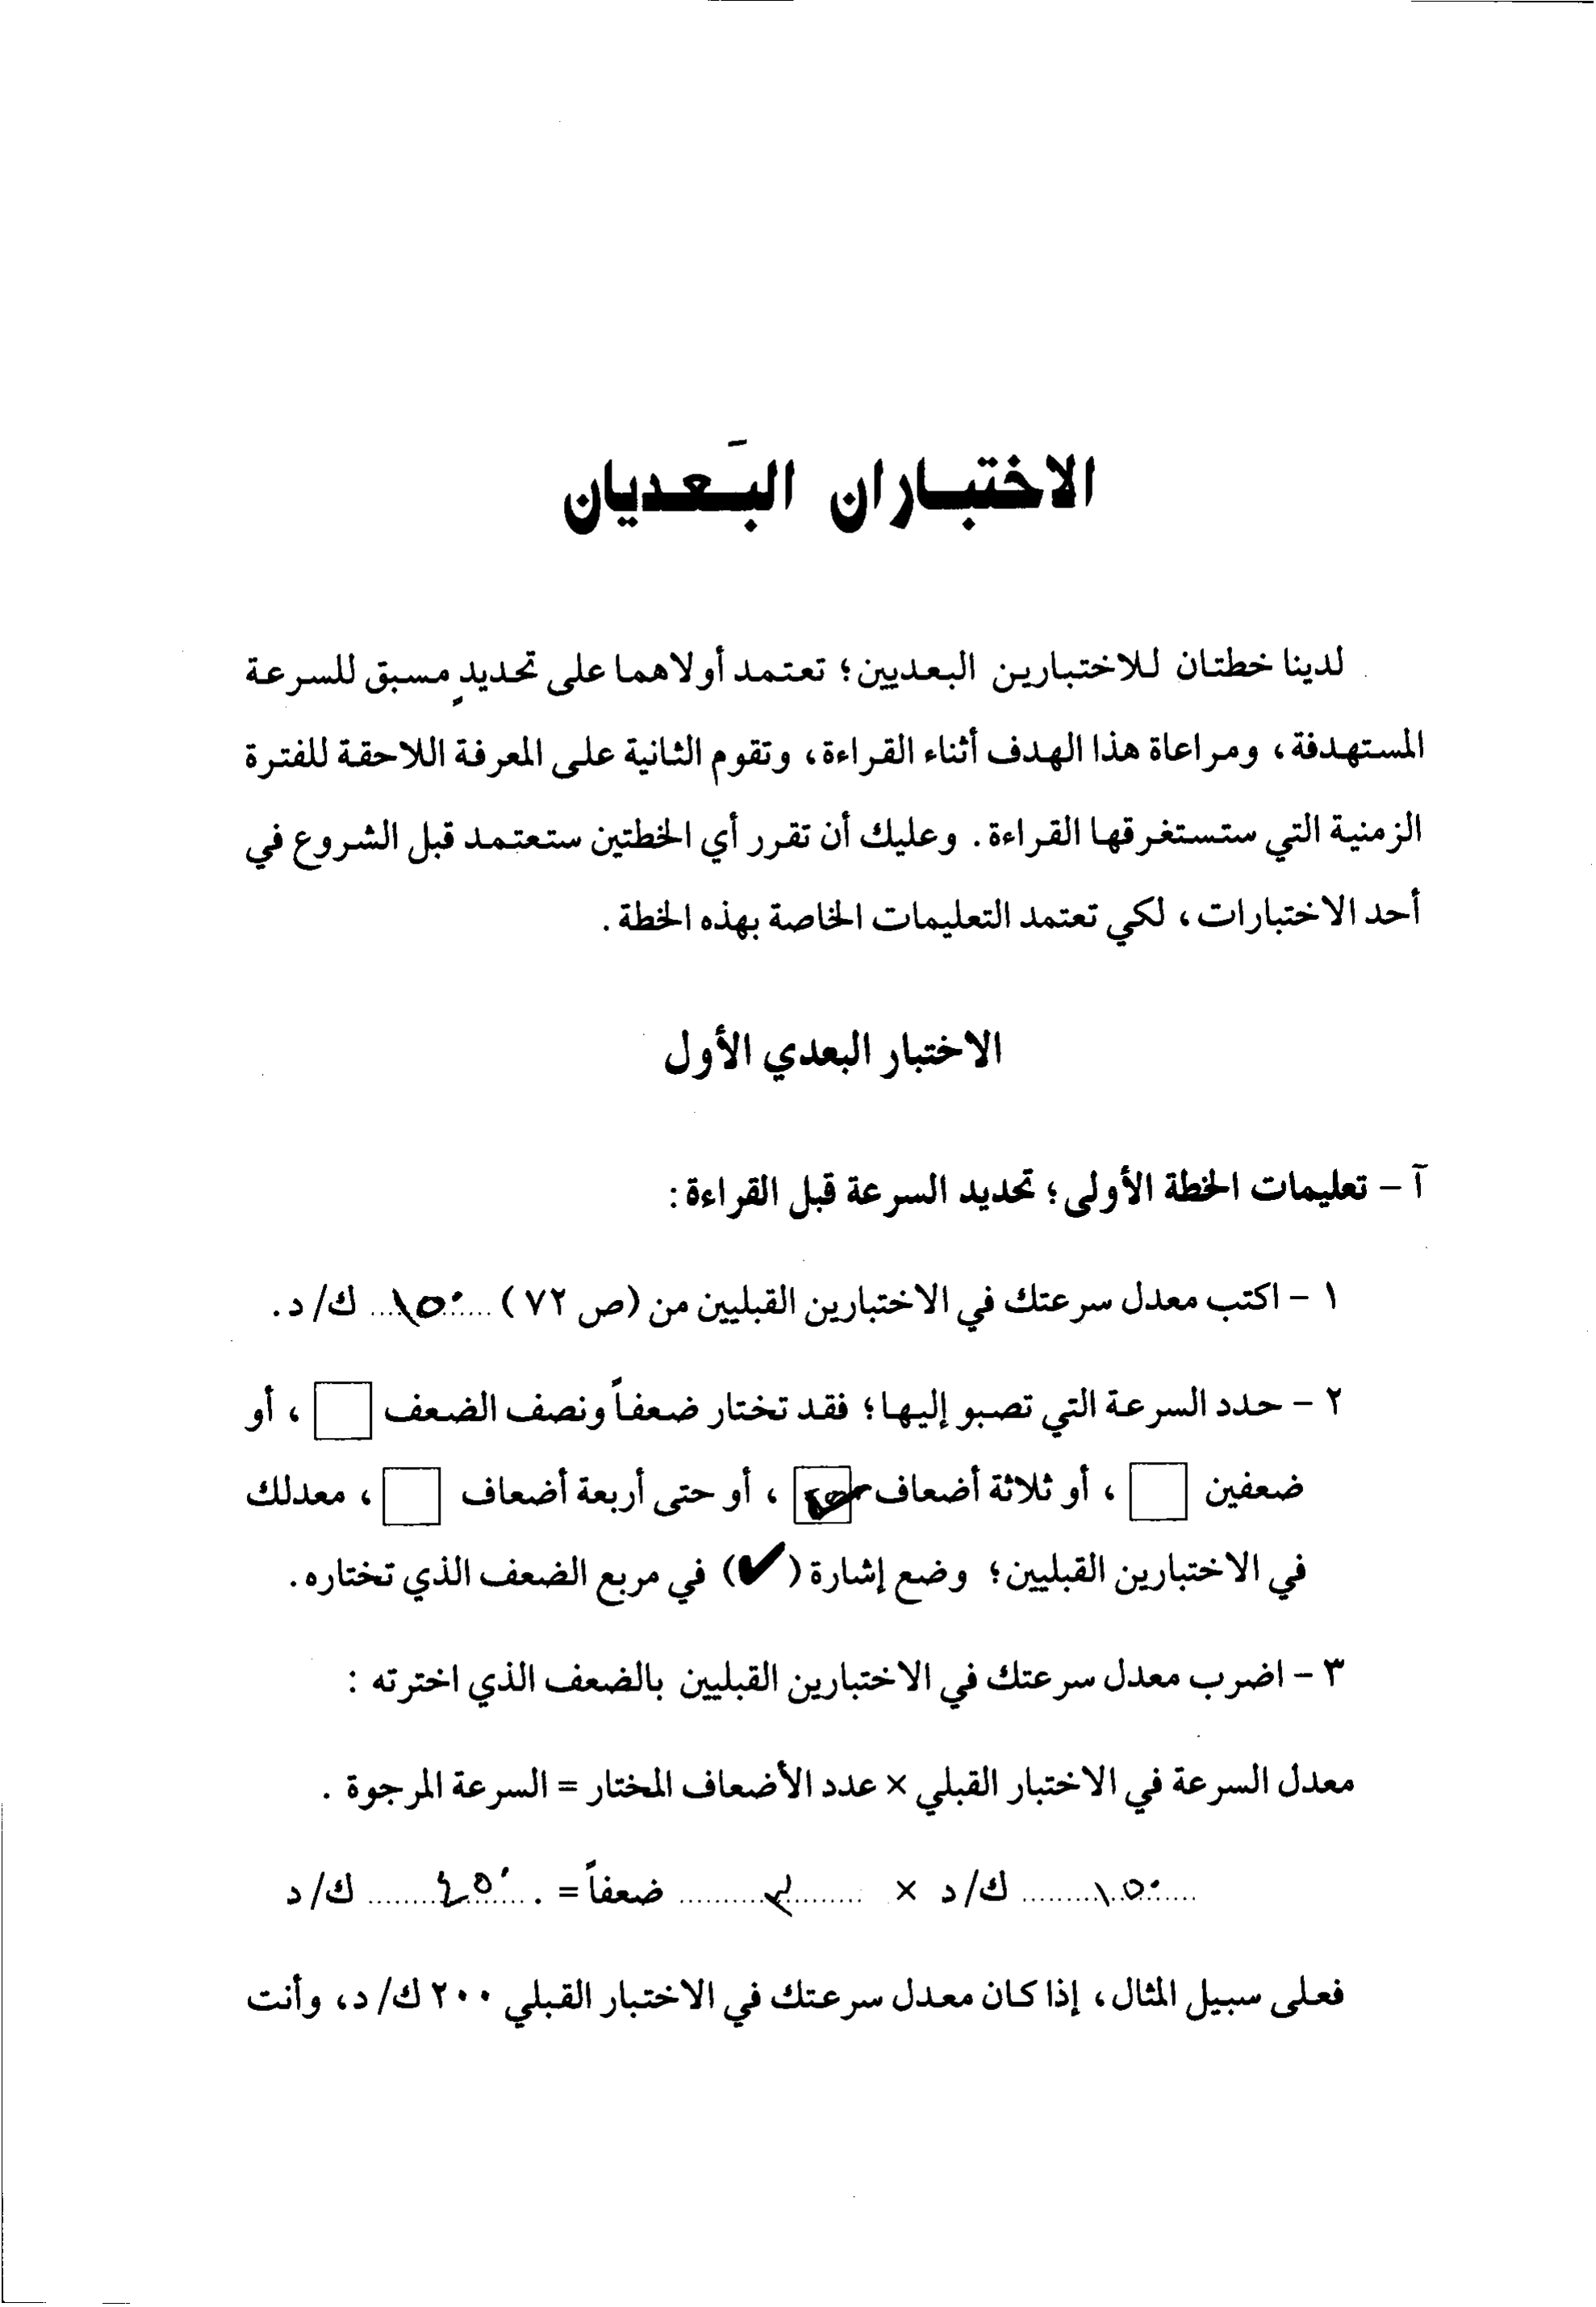 الاختباران البَعديان
لدينا خطتان للاختبارين البعديين؛ تعتمد أولاهما على تحديدٍ مسبق للسرعة
المستهدفة، ومراعاة هذا الهدف أثناء القراءة، وتقوم الثانية على المعرفة اللاحقة للفترة
الزمنية التي ستستغرقها القراءة. وعليك أن تقرر أي الخطتين ستعتمد قبل الشروع في
أحد الاختبارات، لكي تعتمد التعليمات الخاصة بهذه الخطة.
الاختبار البعدي الأول
آ - تعليمات الخطة الأولى؛ تحديد السرعة قبل القراءة:
١ - اكتب معدل سرعتك في الاختبارين القبليين من (ص ٧٢) ....١٥٠.... ك/د.
٢ - حدد السرعة التي تصبو إليها؛ فقد تختار ضعفاً ونصف الضعف □، أو
ضعفين □، أو ثلاثة أضعاف ☑، أو حتى أربعة أضعاف □، معدلك
في الاختبارين القبليين؛ وضع إشارة (✔) في مربع الضعف الذي تختاره.
٣ - اضرب معدل سرعتك في الاختبارين القبليين بالضعف الذي اخترته :
معدل السرعة في الاختبار القبلي × عدد الأضعاف المختار = السرعة المرجوة .
....١٥٠.... ك/د × ....٣.... ضعفاً = ....٤٥٠.... ك/د
فعلى سبيل المثال، إذا كان معدل سرعتك في الاختبار القبلي ٢٠٠ ك/د، وأنت